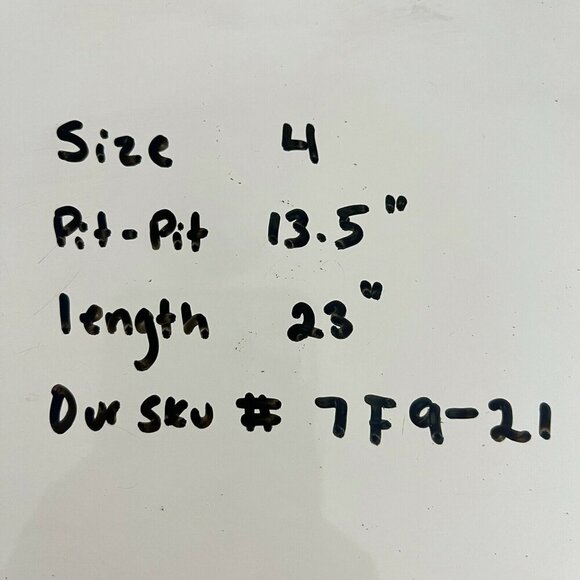 Size 4
Pit-Pit 13.5"
length 23"
Our SKU # 7F9-21